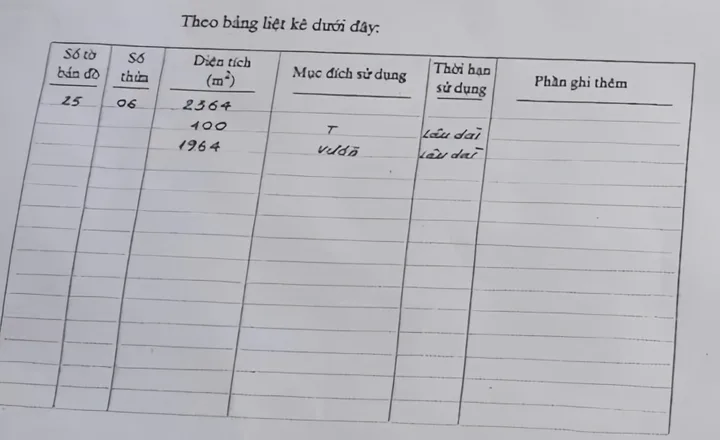 Theo bảng liệt kê dưới đây:
Số tờ bản đồ Số thửa Diện tích (m²) Mục đích sử dụng Thời hạn sử dụng Phần ghi thêm
25 06 2364
400 T Lâu dài
1964 Vườn Lâu dài